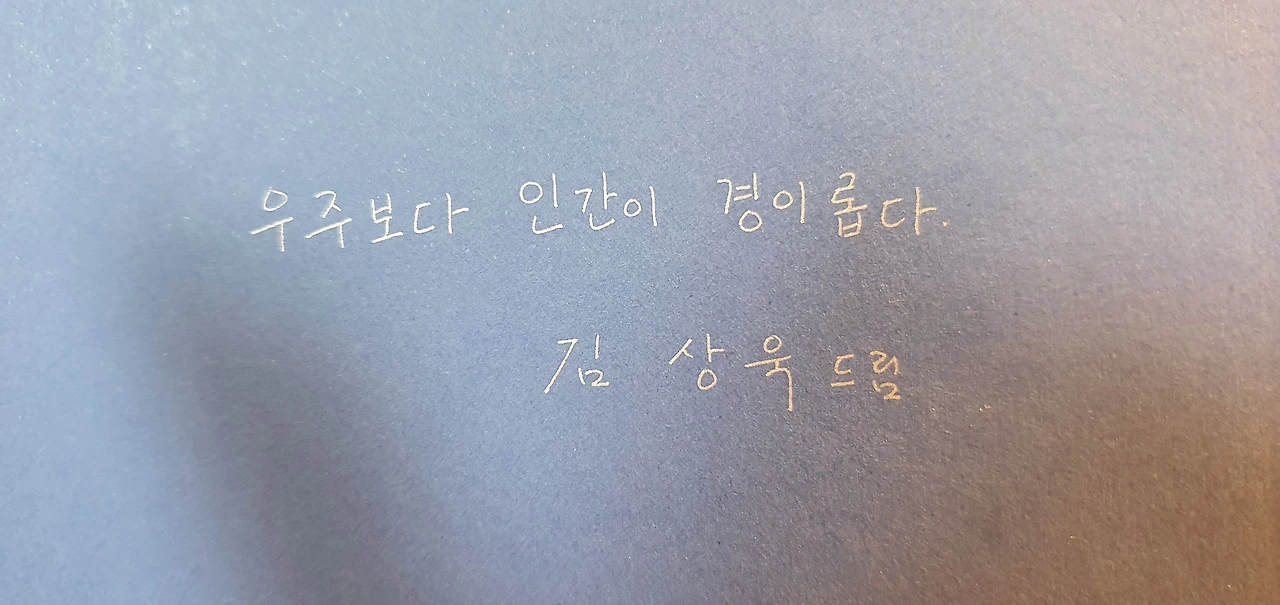 우주보다 인간이 경이롭다.
김 상욱 드림